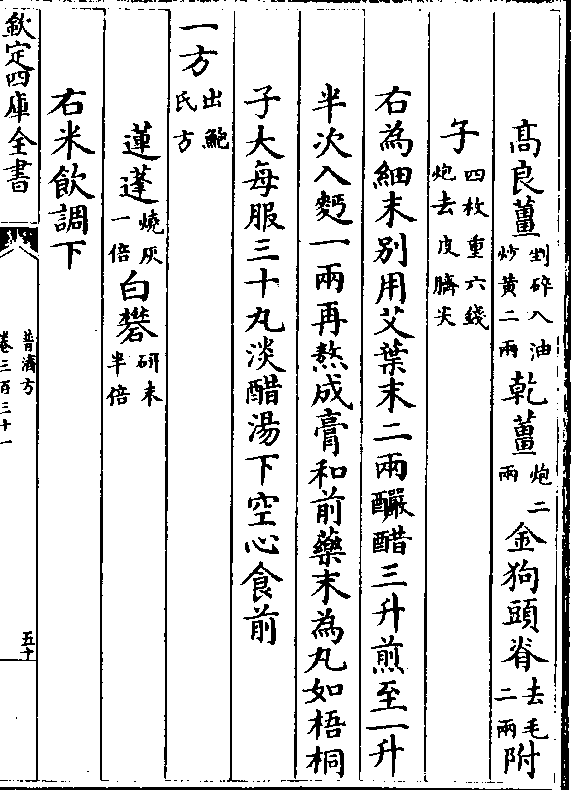 高良薑剉碎入油炒黄二兩乾薑炮二兩金狗頭脊去毛二兩附
子四枚重六錢炮去皮臍尖
右為細末别用艾葉末二兩釅醋三升煎至一升
半次入麫一兩再熬成膏和前藥末為丸如梧桐
子大每服三十丸淡醋湯下空心食前
一方出鮑氏方
蓮蓬燒灰一倍白礬研末半倍
右米飲調下
欽定四庫全書
普濟方
卷三百三十一
五十